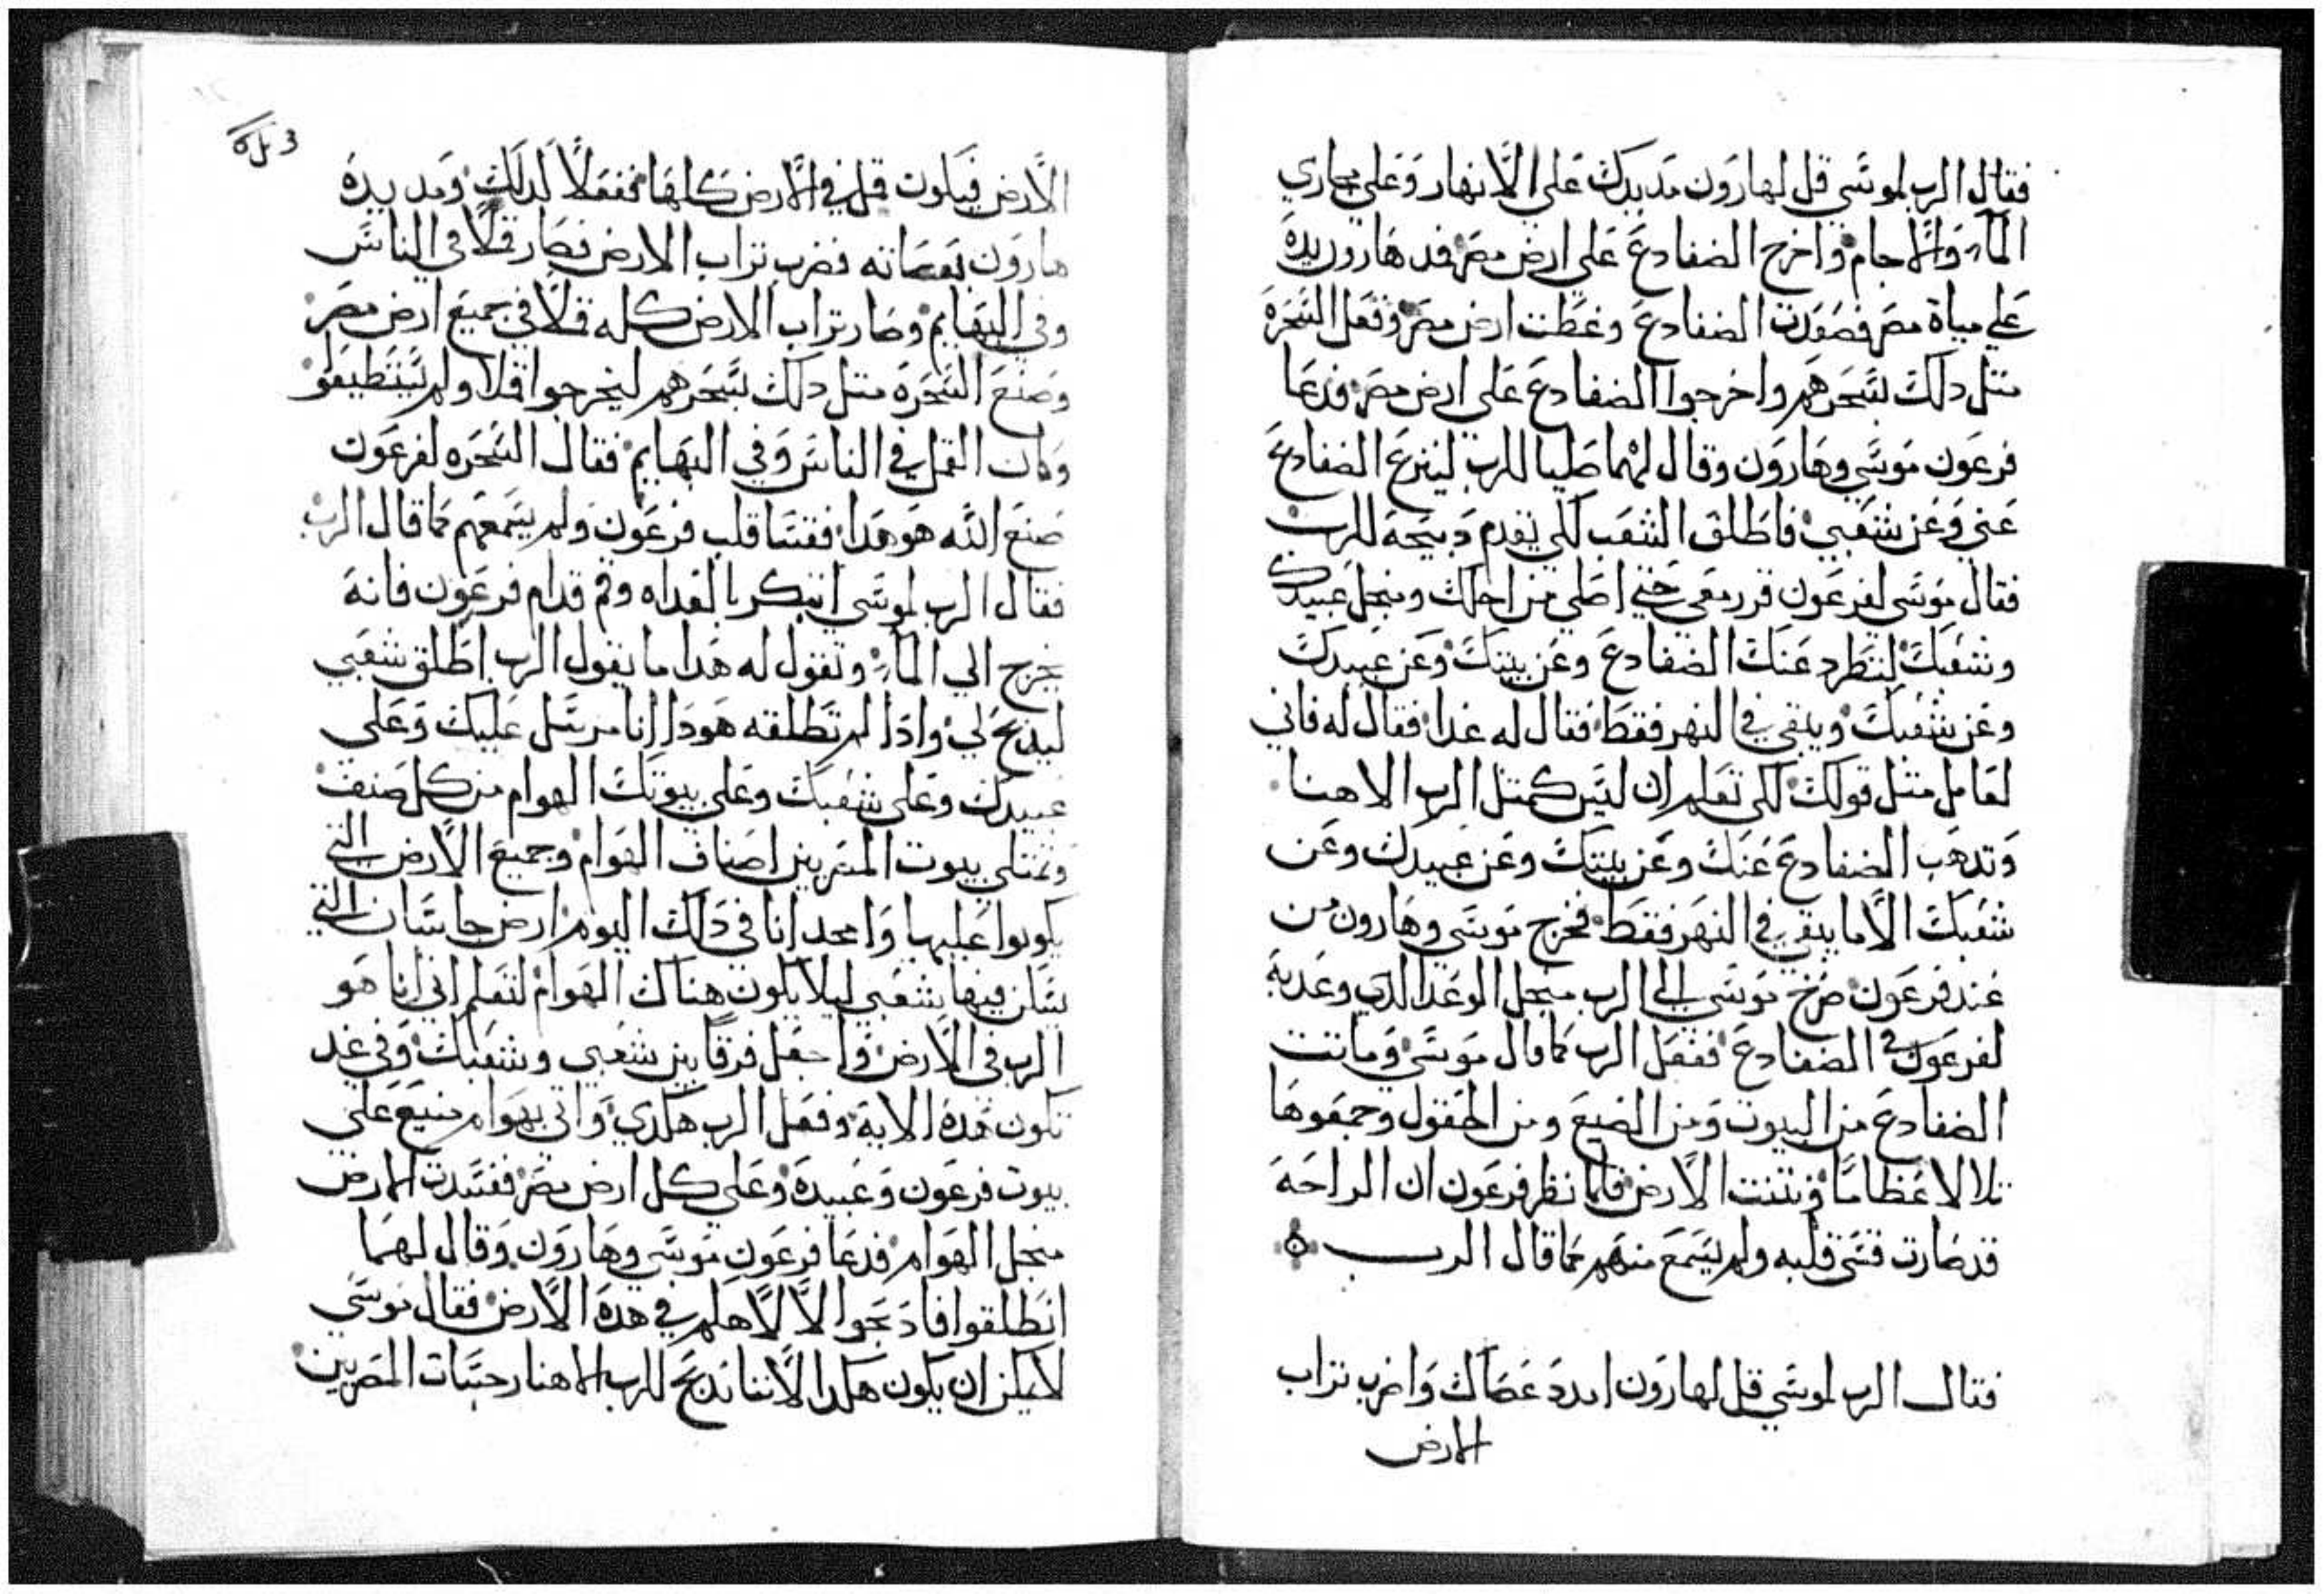 فقال الرب لموسي قل لهارون مد يدك علي الانهار وعلي مجاري
المآء والاجام واخرج الضفادع علي ارض مصر فمد هارون يده
علي مياة مصر فصعدت الضفادع وغطت ارض مصر وفعل السحره
متل دلك بسحرهم واخرجوا الضفادع علي ارض مصر فدعا
فرعون موسي وهارون وقال لهما صليا للرب لينزع الضفادع
عني وعن شعبي فاطلق الشعب لكي يقدم دبيحة للرب
فقال موسي لفرعون قرر معي حتي اصلي من اجلك ومنجل عبيدك
وشعبك لتطرد عنك الضفادع وعن بيتك وعن عبيدك
وعن شعبك ويبقي في النهر فقط فقال له غدا فقال له فاني
لعامل متل قولك لكي تعلم ان ليس كمتل الرب الاهنا
وتدهب الضفادع عنك وعن بيتك وعن عبيدك وعن
شعبك الا ما يبقي في النهر فقط فخرج موسي وهارون من
عند فرعون صرخ موسي الي الرب منجل الوعد الدي وعد به
لفرعون في الضفادع ففعل الرب كما قال موسي وماتت
الضفادع من البيوت ومن الضيع ومن الحقول وجمعوها
تلالا عظاما ونتنت الارض فلما نظر فرعون ان الراحة
قد صارت قسي قلبه ولم يسمع منهم كما قال الرب
فقال الرب لموسي قل لهارون امدد عصاك واضرب تراب
الارض
3
الارض فيكون قمل في الارض كلها ففعلا كدلك ومد يده
هارون بعصاته فضرب تراب الارض فصار قملا في الناس
وفي البهايم وصار تراب الارض كله قملا في جميع ارض مصر
وصنع السحره متل دلك بسحرهم ليخرجوا قملا ولم يستطيعو
وكان القمل في الناس وفي البهايم فقال السحره لفرعون
صنع الله هو هدا فقسا قلب فرعون ولم يسمعهم كما قال الرب
فقال الرب لموسي ابتكر بالغداه وقم قدام فرعون فانه
يخرج الي المآء وتقول له هدا ما يقول الرب اطلق شعبي
ليدبح لي وادا لم تطلقه هودا انا مرسل عليك وعلي
عبيدك وعلي شعبك وعلي بيوتك الهوام من كل صنف
وتمتلي بيوت المصريين اصناف الهوام وجميع الارض التي
يكونوا عليها وامجد انا في دلك اليوم ارض جاسان التي
يسكن فيها شعبي ليلا يكون هناك الهوام لتعلم اني انا هو
الرب في الارض واجعل فرقا بين شعبي وشعبك وفي غد
تكون هده الاية وفعل الرب هكدي واتي بهوام منيع علي
بيوت فرعون وعبيده وعلي كل ارض مصر ففسدت الارض
منجل الهوام فدعا فرعون موسي وهارون وقال لهما
انطلقوا فادبحوا لالاهكم في هده الارض فقال موسي
لا يمكن ان يكون هكدا لاننا ندبح للرب الاهنا رجسات المصريين